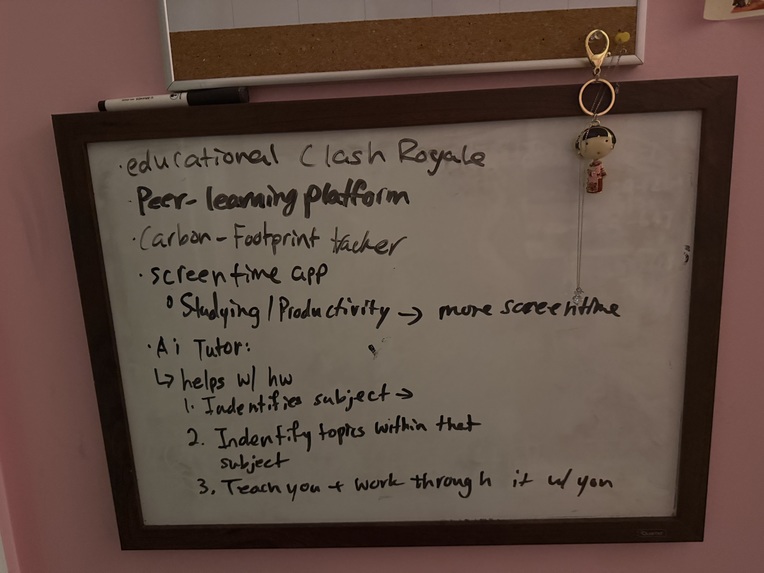 ·educational Clash Royale
·Peer-learning platform
·Carbon-Footprint tracker
·screentime app
o Studying/Productivity → more screentime
·Ai Tutor:
↳ helps w/ hw
1. Indentifies subject →
2. Indentify topics within that
subject
3. Teach you + work through it w/ you